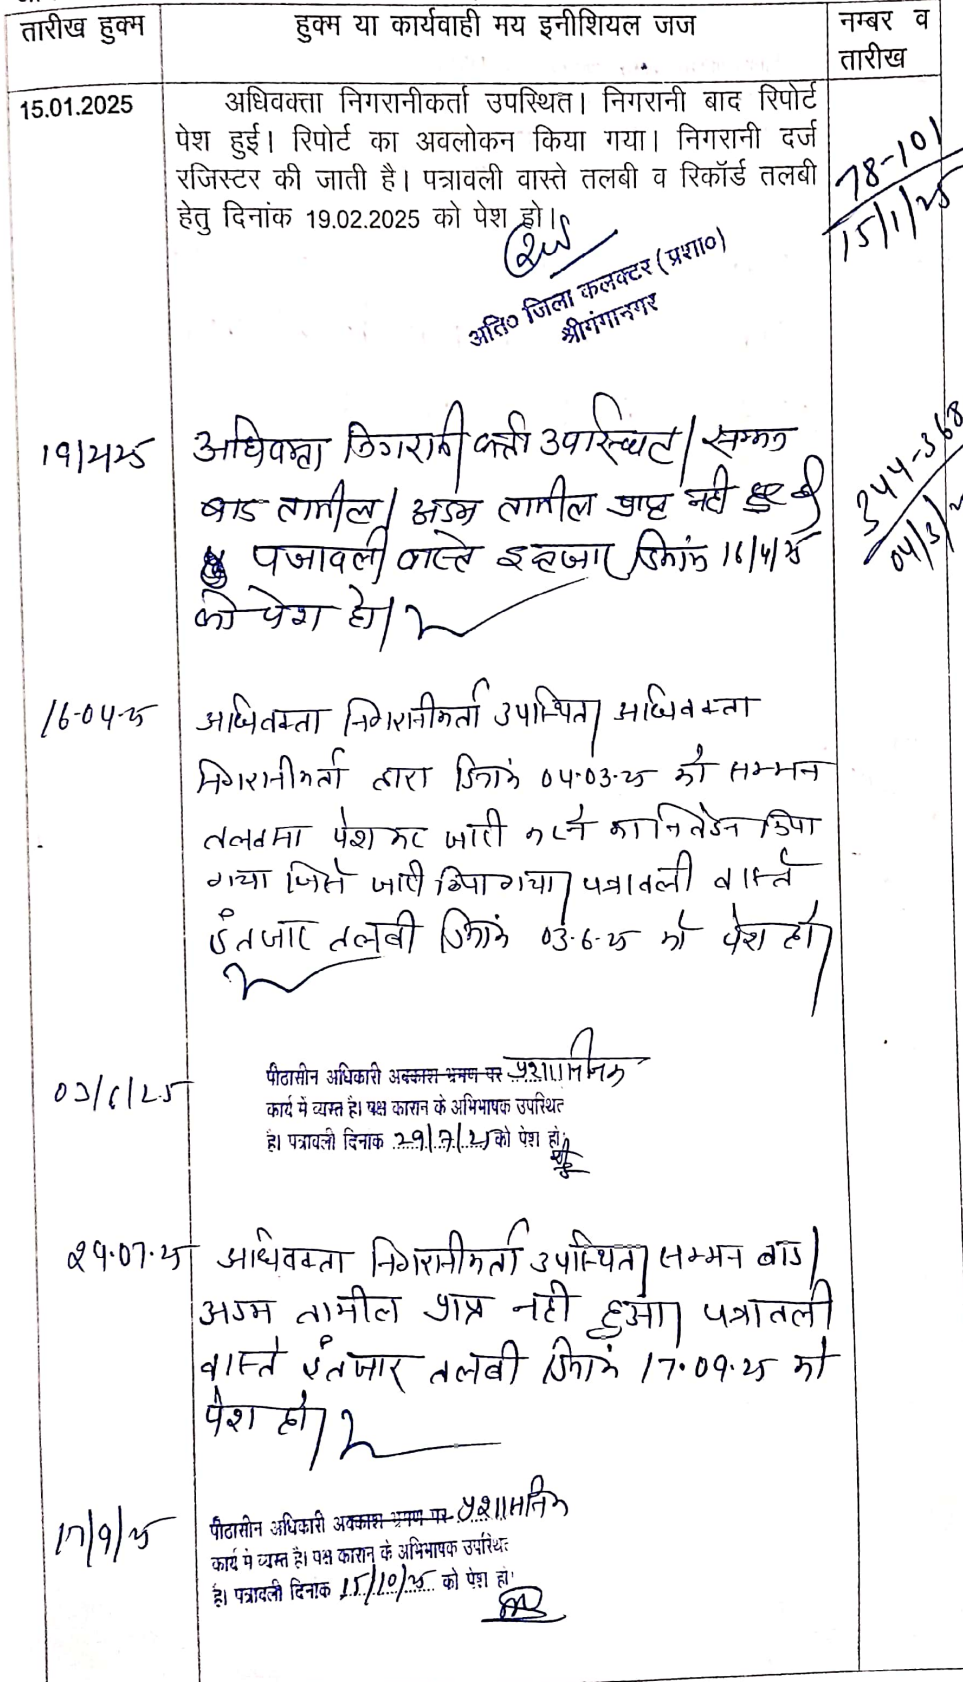 तारीख हुक्म
हुक्म या कार्यवाही मय इनीशियल जज
नम्बर व
तारीख
15.01.2025
अधिवक्ता निगरानीकर्ता उपस्थित। निगरानी बाद रिपोर्ट
पेश हुई। रिपोर्ट का अवलोकन किया गया। निगरानी दर्ज
रजिस्टर की जाती है। पत्रावली वास्ते तलबी व रिकॉर्ड तलबी
हेतु दिनांक 19.02.2025 को पेश हो।
78-101
15/1/25
अति० जिला कलक्टर (प्रशा०)
श्रीगंगानगर
19/2/25
अधिवक्ता निगरानीकर्ता उपस्थित। सम्मन
बाद तामील / अदम तामील प्राप्त नहीं हुए
पत्रावली वास्ते इन्तजार दिनांक 16/4/25
को पेश हो।
344-368
04/3/2
16-04-25
अधिवक्ता निगरानीकर्ता उपस्थित। अधिवक्ता
निगरानीकर्ता द्वारा दिनांक 04-03-25 को सम्मन
तलबमा पेश कर जारी करने का निवेदन किया
गया जिसे जारी किया गया। पत्रावली वास्ते
इंतजार तलबी दिनांक 03-6-25 को पेश हो।
03/6/25
पीठासीन अधिकारी अवकाश भ्रमण पर प्रशासनिक
कार्य में व्यस्त है। पक्ष कारान के अभिभाषक उपस्थित
है। पत्रावली दिनाक 29/7/25 को पेश हो।
29.07.25
अधिवक्ता निगरानीकर्ता उपस्थित। सम्मन बाद /
अदम तामील प्राप्त नहीं हुआ। पत्रावली
वास्ते इंतजार तलबी दिनांक 17.09.25 को
पेश हो।
17/9/25
पीठासीन अधिकारी अवकाश भ्रमण पर प्रशासनिक
कार्य में व्यस्त है। पक्ष कारान के अभिभाषक उपस्थित
है। पत्रावली दिनाक 15/10/25 को पेश हो।